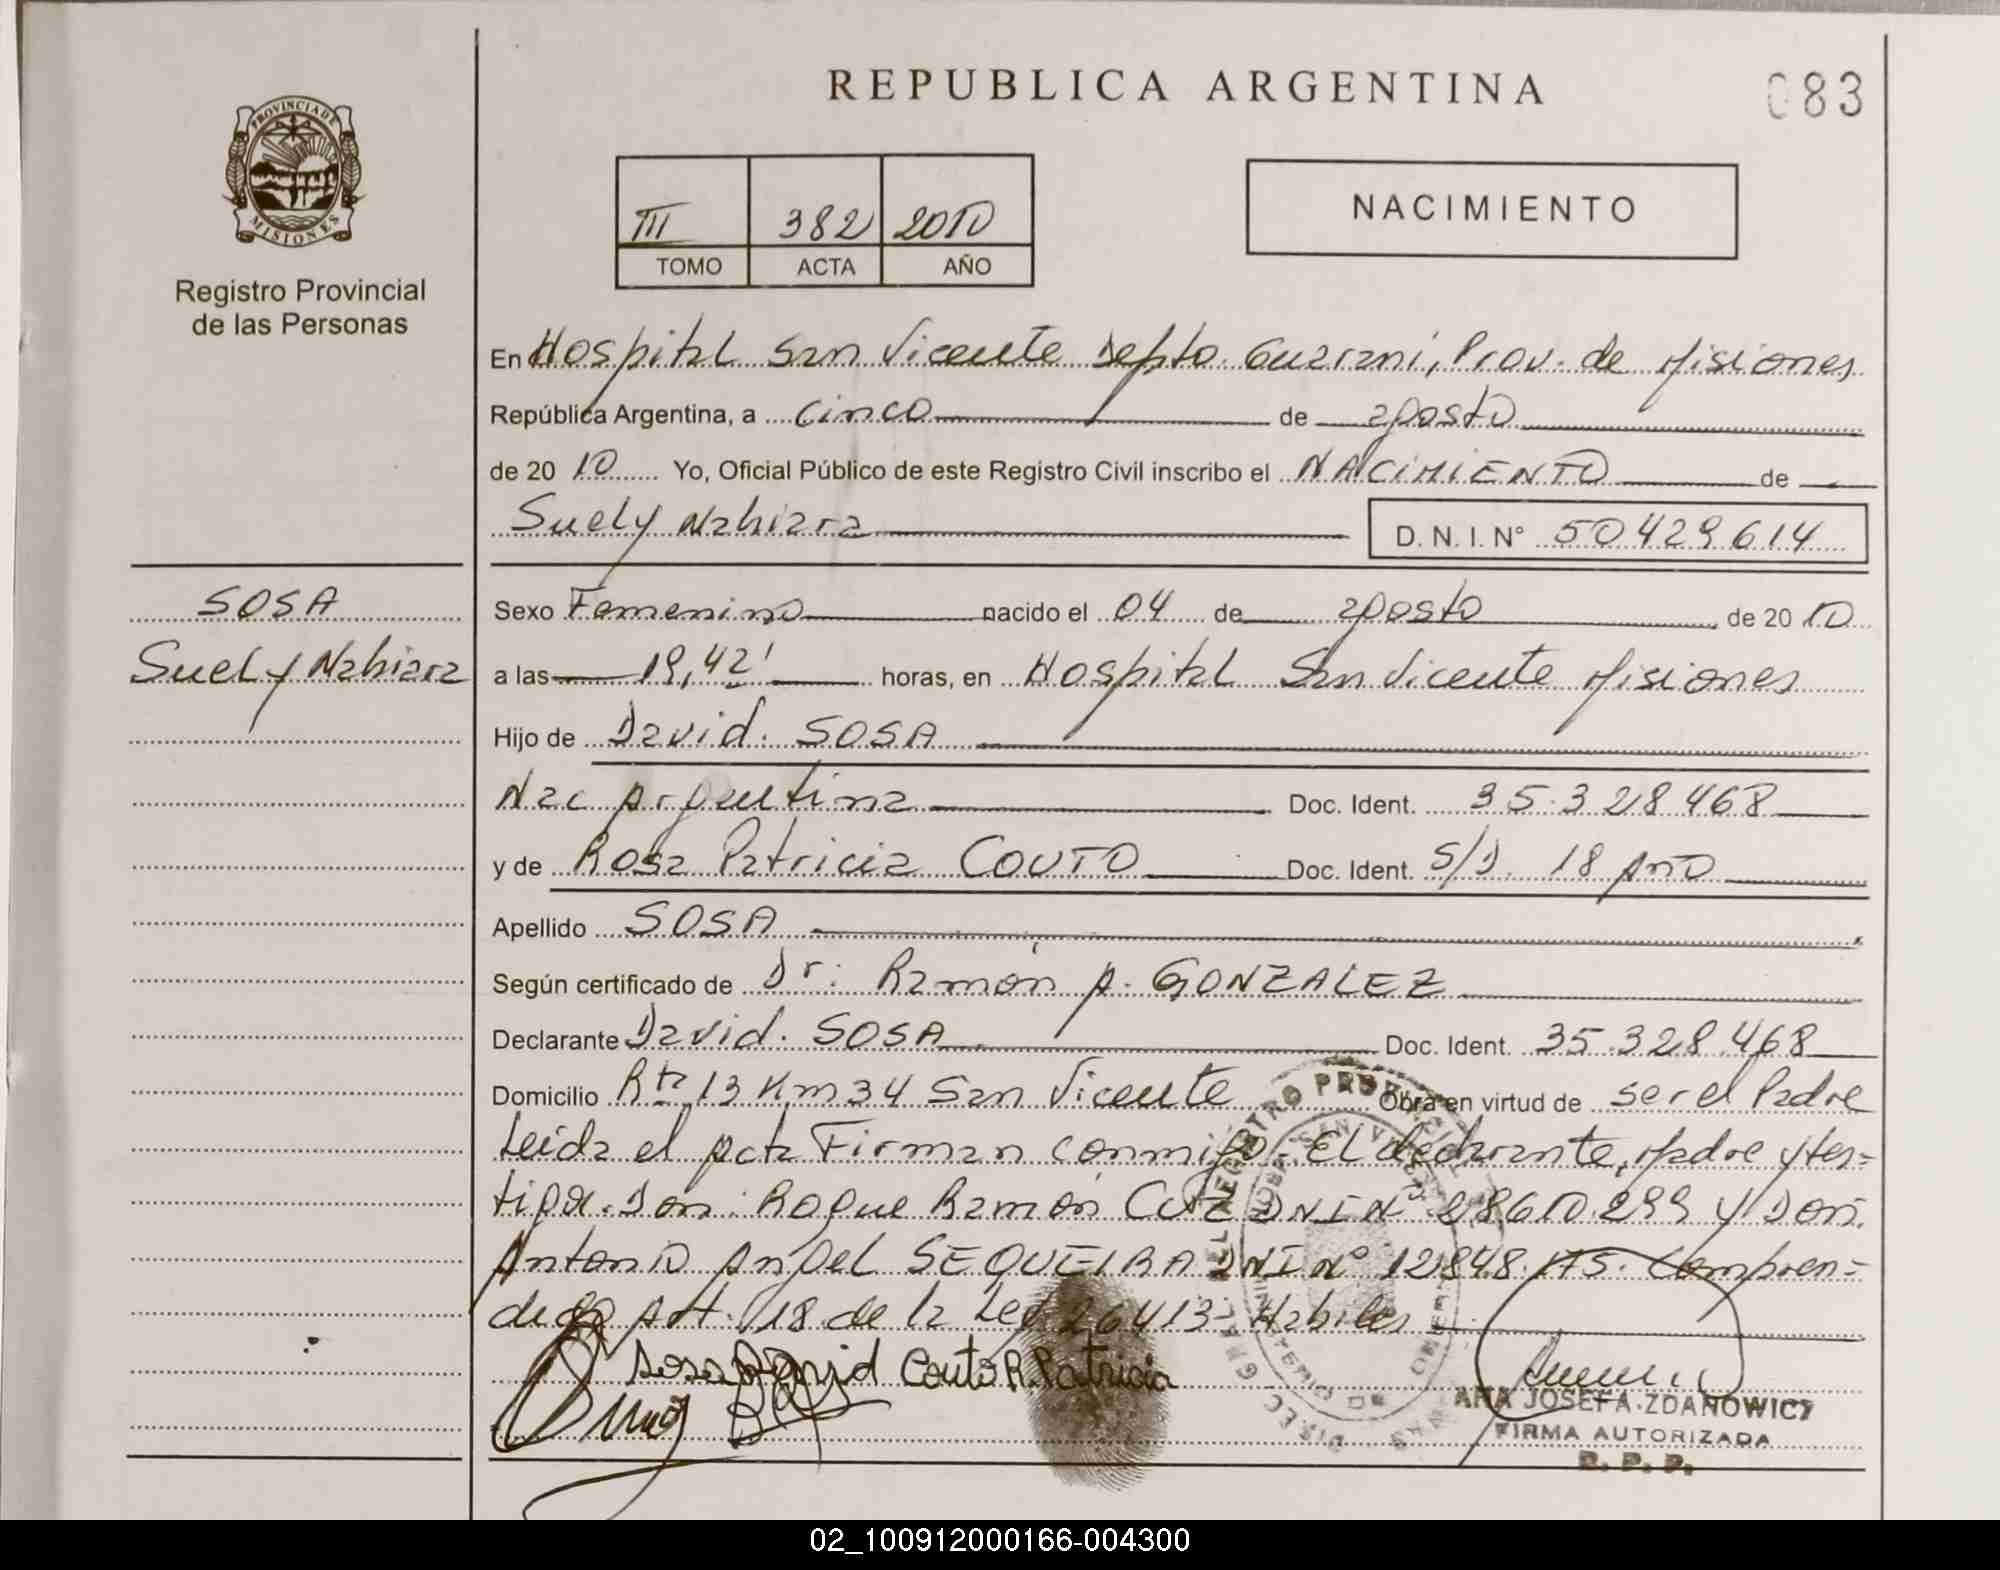 REPUBLICA ARGENTINA
083
PROVINCIA DE
MISIONES
Registro Provincial
de las Personas
III 382 2010
TOMO ACTA AÑO
NACIMIENTO
En Hospital San Vicente Depto. Guarani, Prov. de Misiones
República Argentina, a cinco de agosto
de 2010 Yo, Oficial Público de este Registro Civil inscribo el NACIMIENTO de
Suely Nahiara
D.N.I.Nº 50429614
SOSA
Suely Nahiara
Sexo Femenino nacido el 04 de agosto de 2010
a las 19,42' horas, en Hospital San Vicente Misiones
Hijo de David. SOSA
Nac Argentina Doc. Ident. 35.328468
y de Rosa Patricia COUTO Doc. Ident. S/D. 18 Año
Apellido SOSA
Según certificado de Dr: Ramón A. GONZALEZ
Declarante David. SOSA Doc. Ident. 35.328.468
Domicilio Rta 13 Km 34 San Vicente Obra en virtud de ser el Padre
Leida el acta Firman conmigo. El declarante, Madre y tes=
tigo. Don: Roque Ramón DNI Nº 28610.299 y Don.
Antonio Angel SEQUEIRA DNI Nº 12848.175. Compren=
dido Art. 18 de la Ley 26413- Habiles
Sosa David Couto R. Patricia
ANA JOSEFA ZDANOWICZ
FIRMA AUTORIZADA
R. P. P.
02_100912000166-004300